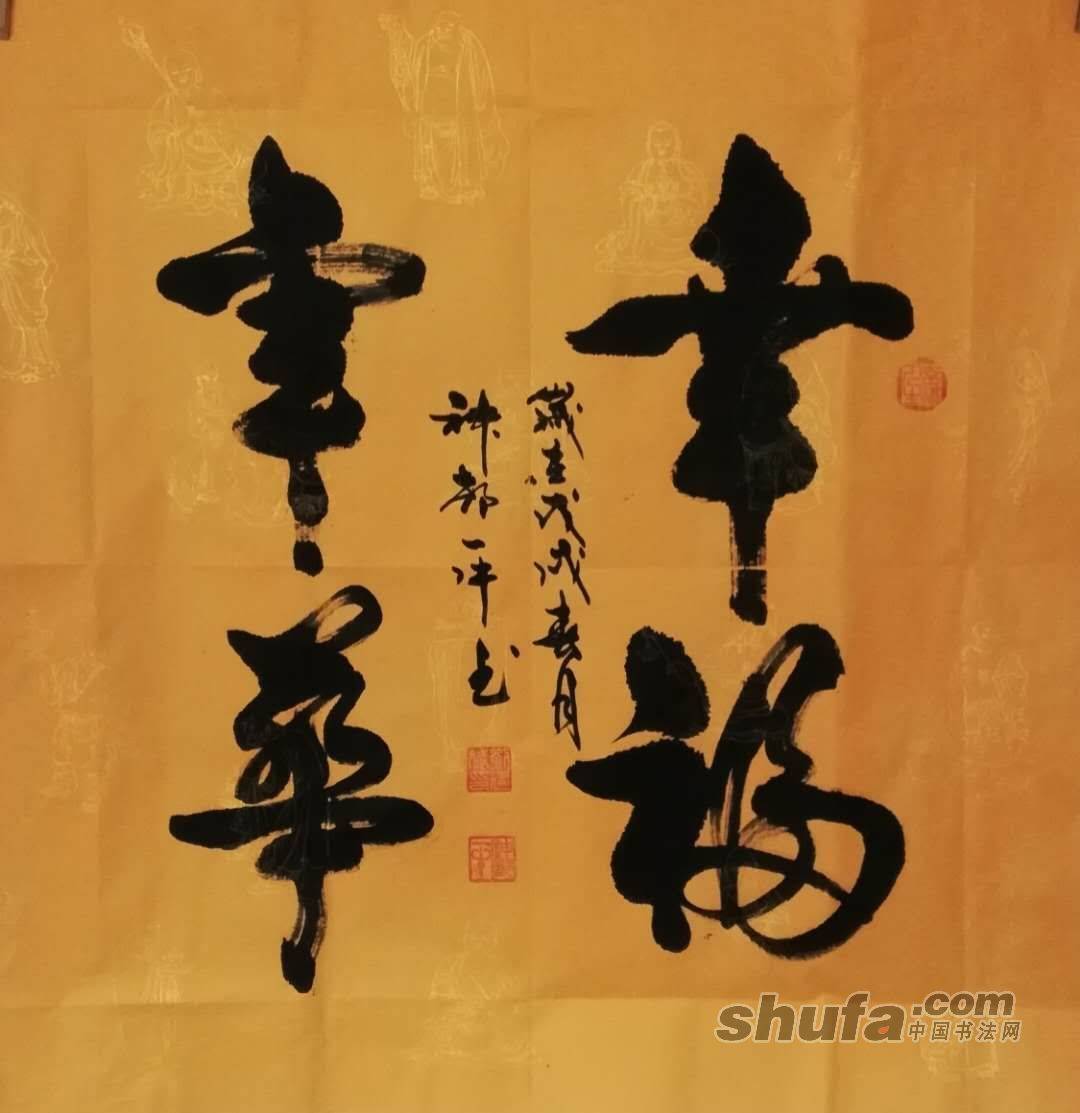 幸福
年華
歲在戊戌春月
神都一平书
shufa.com
中国书法网